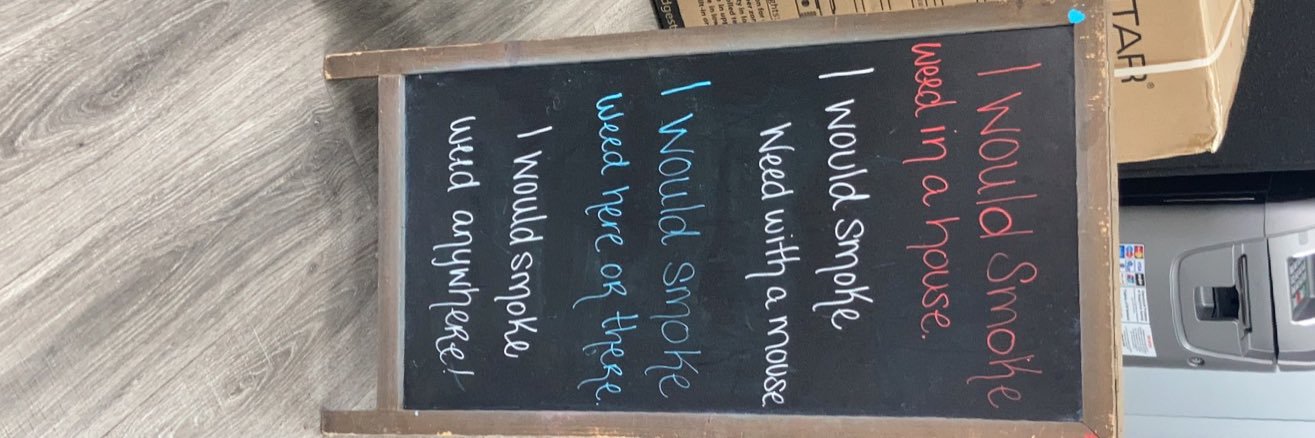 I Would Smoke
weed in a house.
I would smoke
weed with a mouse
I would smoke
weed here or there.
I would smoke
weed anywhere!
TAR®